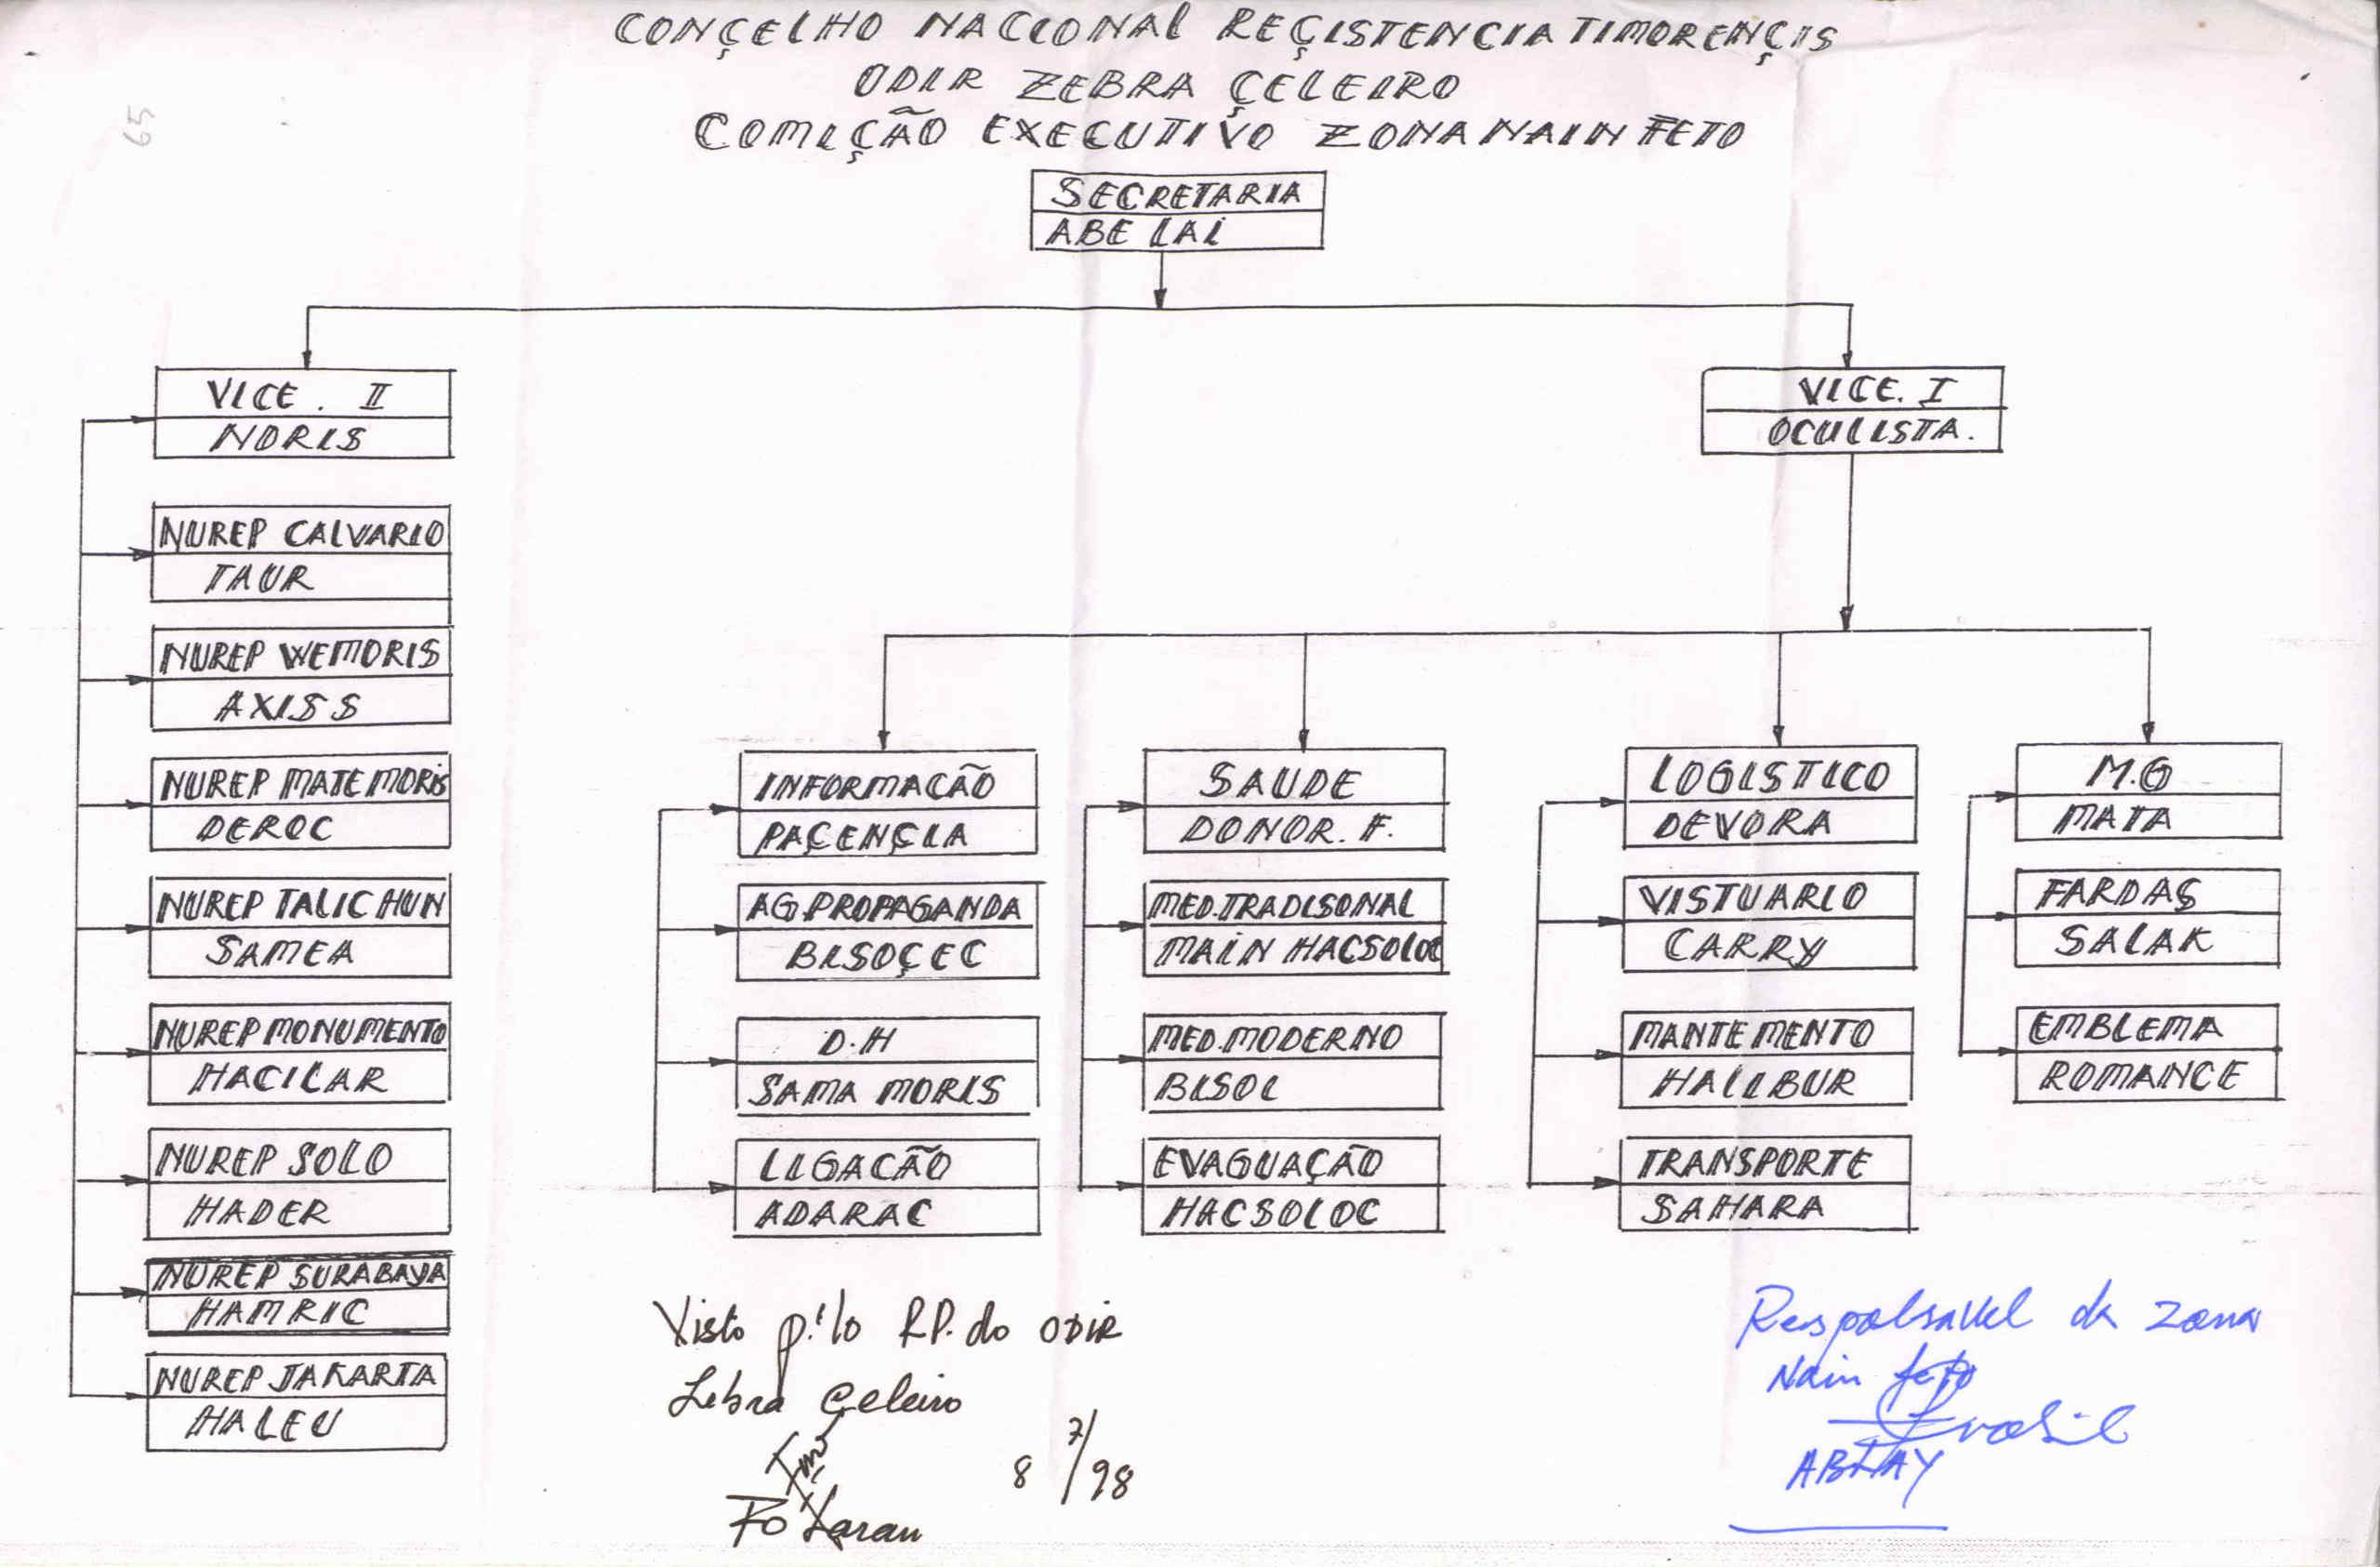 CONÇELHO NACIONAL REÇISTENCIA TIMORENÇIS
ODIR ZEBRA ÇELEIRO
COMIÇÃO EXECUTIVO ZONA NAIN FETO
65
SECRETARIA
ABE LAI
VICE. II
NORIS
VICE. I
OCULISTA.
NUREP CALVARIO
TAUR
NUREP WEMORIS
AXISS
NUREP MATE MORIS
DEROC
NUREP TALIC HUN
SAMEA
NUREP MONUMENTO
HACILAR
NUREP SOLO
HADER
NUREP SURABAYA
HAMRIC
NUREP JAKARTA
HALEU
INFORMACÃO
PAÇENÇIA
AG.PROPAGANDA
BISOÇEC
D.H
SAMA MORIS
LIGACÃO
ADARAC
SAUDE
DONOR. F.
MED.TRADISONAL
MAIN HACSOLOC
MED.MODERNO
BISOL
EVAGUAÇÃO
HACSOLOC
LOGISTICO
DEVORA
VISTUARIO
CARRY
MANTEMENTO
HALIBUR
TRANSPORTE
SAHARA
M.G
MATA
FARDAS
SALAK
EMBLEMA
ROMANCE
Visto p.'lo RP. do ODIR
Zebra Çeleiro
8/7/98
Responsavel da zona
Nain feto